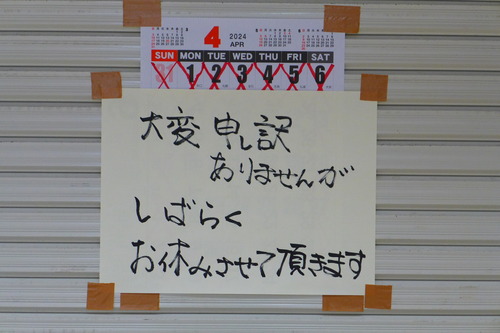 4
2024
APR
SUN MON TUE WED THU FRI SAT
1 2 3 4 5 6
大変 申し訳
ありませんが
しばらく
お休みさせて頂きます